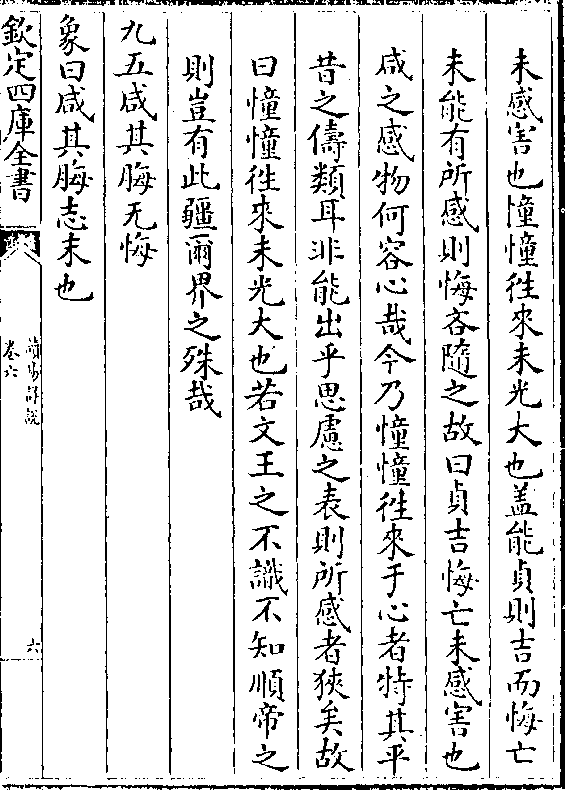 未感害也憧憧徃來未光大也盖能貞則吉而悔亡
未能有所感則悔吝隨之故曰貞吉悔亡未感害也
咸之感物何容心哉今乃憧憧徃來于心者特其平
昔之儔類耳非能出乎思慮之表則所感者狹矣故
曰憧憧徃來未光大也若文王之不識不知順帝之
則豈有此疆爾界之殊哉
九五咸其脢无悔
象曰咸其脢志末也
欽定四庫全書
讀易詳說
卷六
六